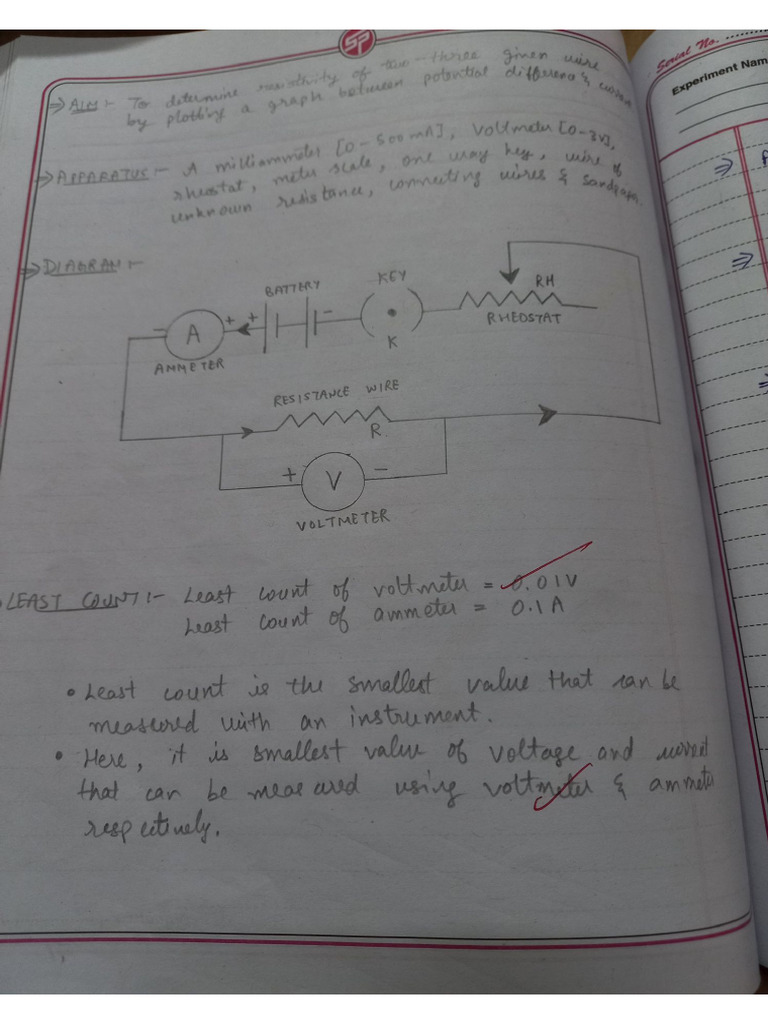 SP
Serial No. ........
Experiment Nam
⇒ AIM :- To determine resistivity of two-three given wire
by plotting a graph between potential difference & current
⇒ APPARATUS :- A milliammeter [0-500mA], Voltmeter [0-3V],
rheostat, meter scale, one way key, wire of
unknown resistance, connecting wires & sandpaper.
⇒ DIAGRAM :-
BATTERY
KEY
RH
RHEOSTAT
- A + + -
K
AMMETER
RESISTANCE WIRE
R
+ V -
VOLTMETER
LEAST COUNT :- Least count of voltmeter = 0.01V
Least count of ammeter = 0.1A
• Least count is the smallest value that can be
measured with an instrument.
• Here, it is smallest value of voltage and current
that can be measured using voltmeter & ammeter
respectively.